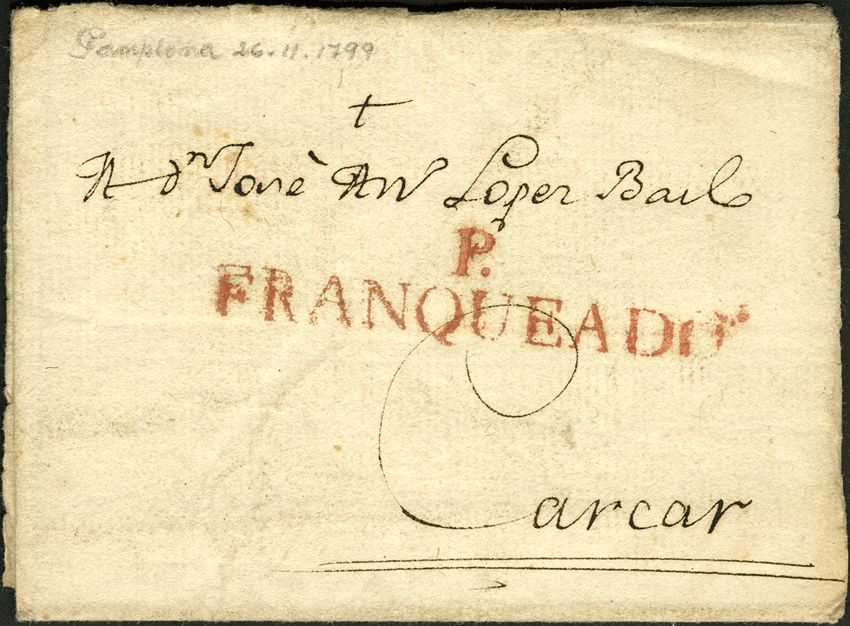 Pamplona 26.11.1799
+
A Dn Josè Anto Loper Bail
P.
FRANQUEADO
Carcar